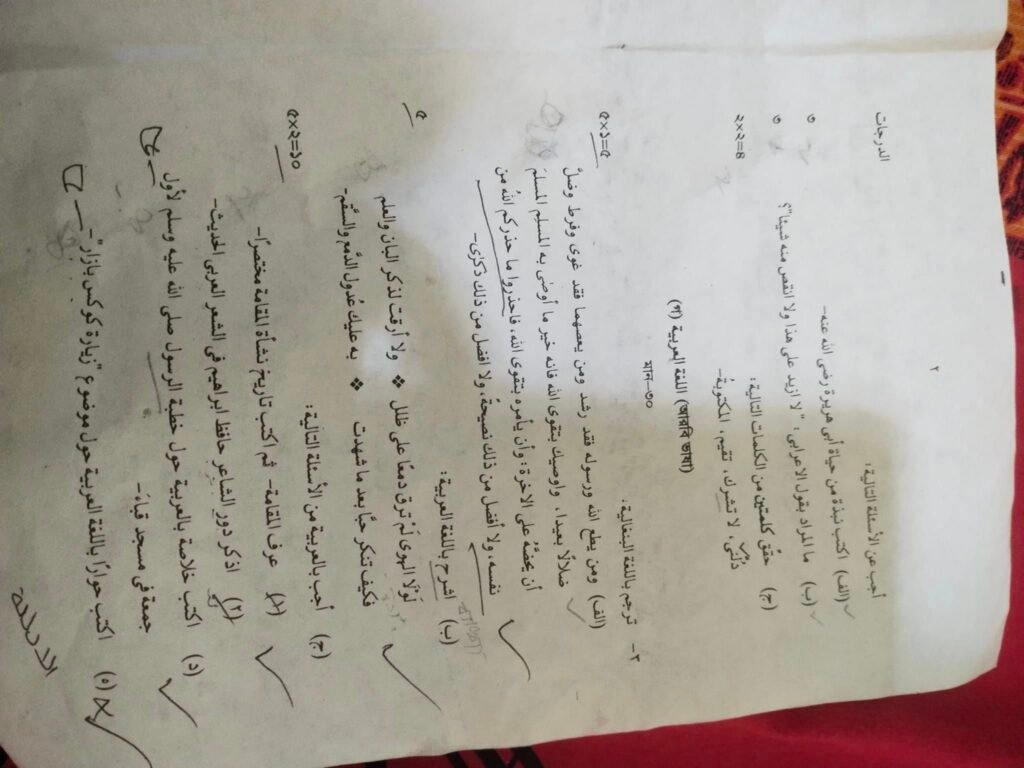 ٢
الدرجات
أجب عن الأسئلة التالية:
(الف) اكتب نبذة من حياة أبى هريرة رضى الله عنه- ৩
(ب) ما المراد بقول الاعرابى: "لا ازيد على هذا ولا انقص منه شيئا"؟ ৩
(ج) حقّق كلمتين من الكلمات التالية: ২×২=৪
دُلّنى، لا تشرك، تقيم، المكتوبة-
(গ) اللغة العربية (আরবি ভাষা)
মান-৩০
٣- ترجم باللغة البنغالية:
(الف) ومن يطع الله ورسوله فقد رشد ومن يعصهما فقد غوى وفرط وضلّ ৫×১=৫
ضلالًا بعيدا، واوصيك بتقوى الله فانه خير ما أوضى به المسلم المسلمَ
أن يحضّهُ على الاخرة: وأن يأمره بتقوى الله، فاحذروا ما حذركم الله من
نفسه، ولا أفضل من ذلك نصيحةً، ولا أفضل من ذلك ذكرٰى-
(ب) اشرح باللغة العربية: ৫
لَوْلَا الهوى لَمْ ترق دمعًا على ظلل ❖ ولا أرقت لذكر البان والعلم
فكيف تنكر حبًّا بعد ما شهدت ❖ به عليك عُدول الدّمع والسّقم-
(ج) أجب بالعربية من الأسئلة التالية: ৫×২=১০
(١) عرف المقامة- ثم اكتب تاريخ نشأة المقامة مختصرًا-
(٢) اذكر دور الشاعر حافظ ابراهيم فى الشعر العربى الحديث-
(د) اكتب خلاصة بالعربية حول خطبة الرسول صلى الله عليه وسلم لأول
جمعة فى مسجد قباءَ-
(ه) اكتب حوارًا باللغة العربية حول موضوع "زيارة كوكس بازار"-